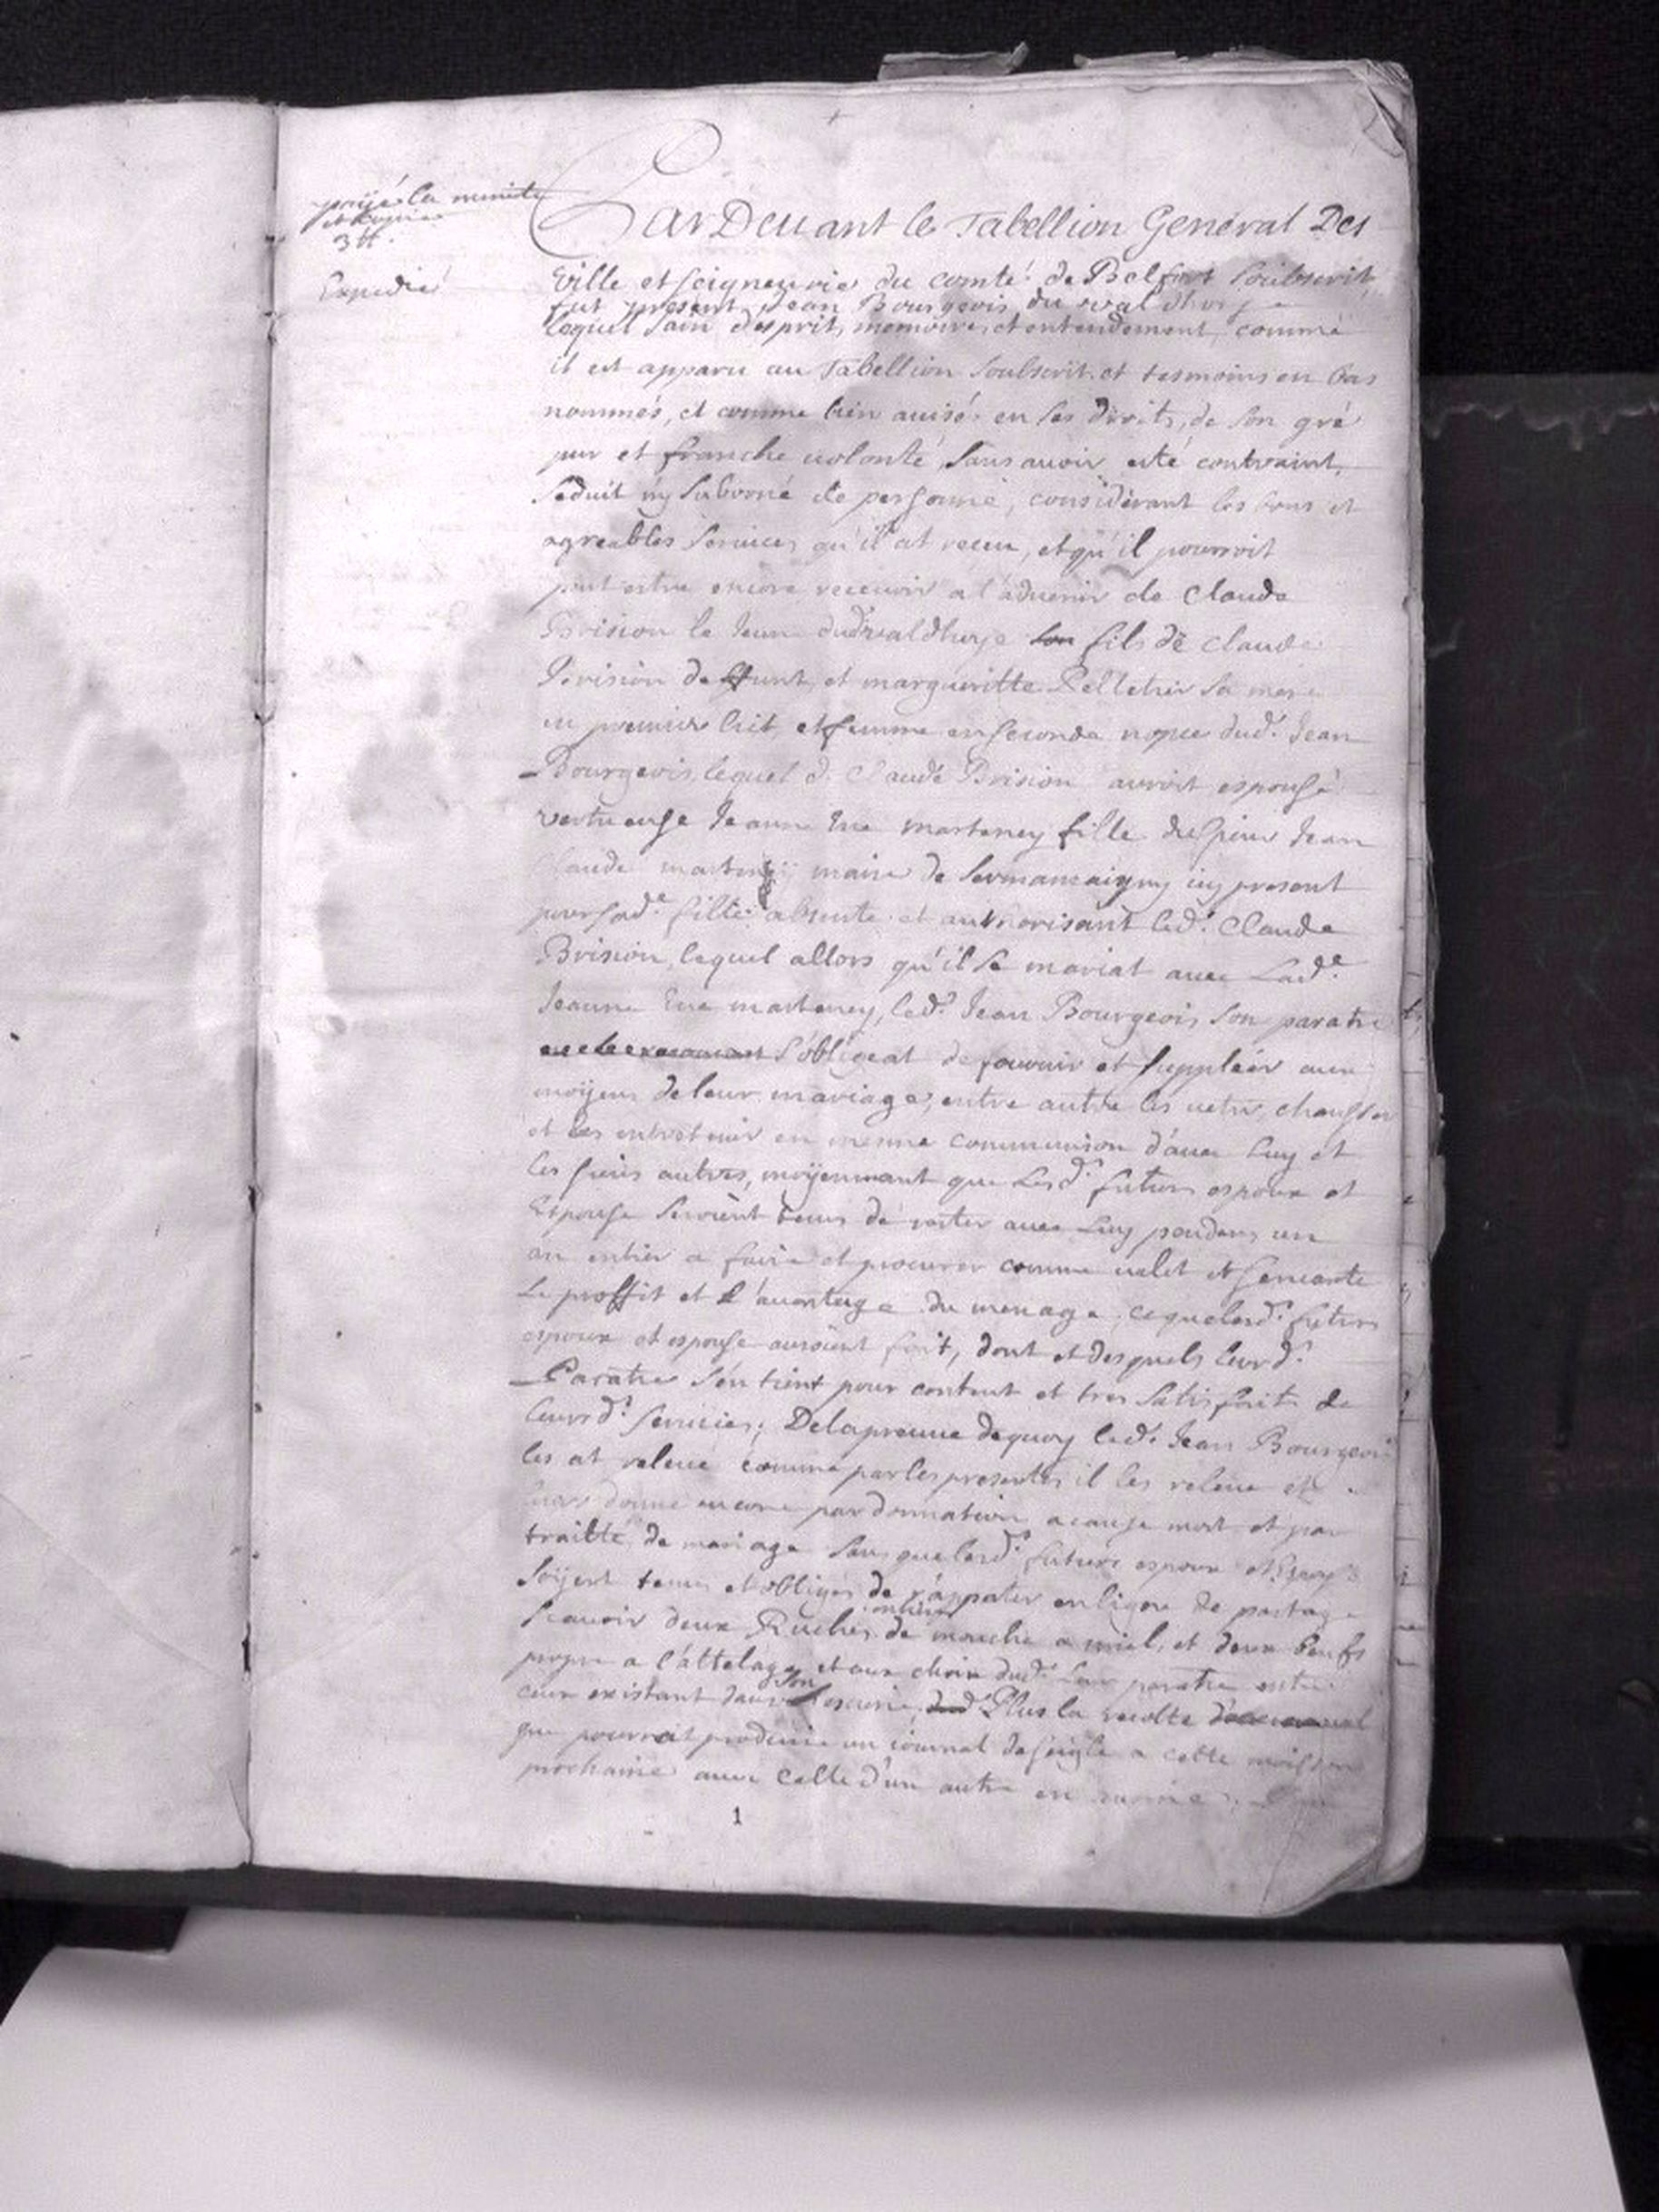 payé la minute
et copie
3 tt.
Expedié
Par Deuant le Tabellion General Des
Ville et seigneurie du comté de Belfort soubscrit
fut present Jean Bourgeois du valdhoye
lequel sain d'esprit, memoire, et entendement, comme
il est apparu au Tabellion soubscrit et tesmoins en bas
nommés, et comme bien auisé en ses droits, de son gré
pur et franche uolonté, sans auoir esté contraint,
seduit ny suborné de personne, considerant les bons et
agreables seruices qu'il at receu, et qu'il pourroit
peut estre encore receuoir a l'aduenir de Claude
Brision le Jeune dud valdhoye son fils de Claude
Brision deffunt, et margueritte Pelletier sa mere
en premier lict et femme en seconde nopce dud. Jean
Bourgeois, lequel d. Claude Brision auroit espousé
vertueuse Jeanne Eue marteney fille du sieur Jean
Claude marteney maire de Sermamaigny icy present
pour sad.e fille absente et authorisant led. Claude
Brision, lequel allors qu'il se mariat auec Lad.e
Jeanne Eue marteney, led. Jean Bourgeois son paratre
s'obligeat de fournir et suppleer aux
moyens de leur mariage, entre autre les uetir, chausser
et les entretenir en mesme communion d'auec luy et
les siens autres, moyennant que Lesd. futurs espoux et
Espouse seroient tenus de rester auec Luy pendans un
an entier a faire et procurer comme ualet et seruante
Le proffit et l'auantage du menage, ce que lesd. futurs
espoux et espouse auroient fait, dont et desquels leurd.
Paratre s'en tient pour content et tres satisfait de
leursd. seruices; De la preuue de quoy led. Jean Bourgeois
les at releué comme par les presentes il les releue et
leurs donne encore par donnation a cause mort et par
traitté de mariage sans que lesd. futurs espoux et Espouse
soyent tenus et obligés de r'appater en ligne de partage
scauoir deux Ruches de mouche a miel, et deux beufs
propre a l'attelage et aux choix dud. leur paratre entre
ceux existant dans son escurie, Plus la recolte
que pourroit produire un iournal de seigle a cette moisson
prochaine auec celle d'un autre en
1